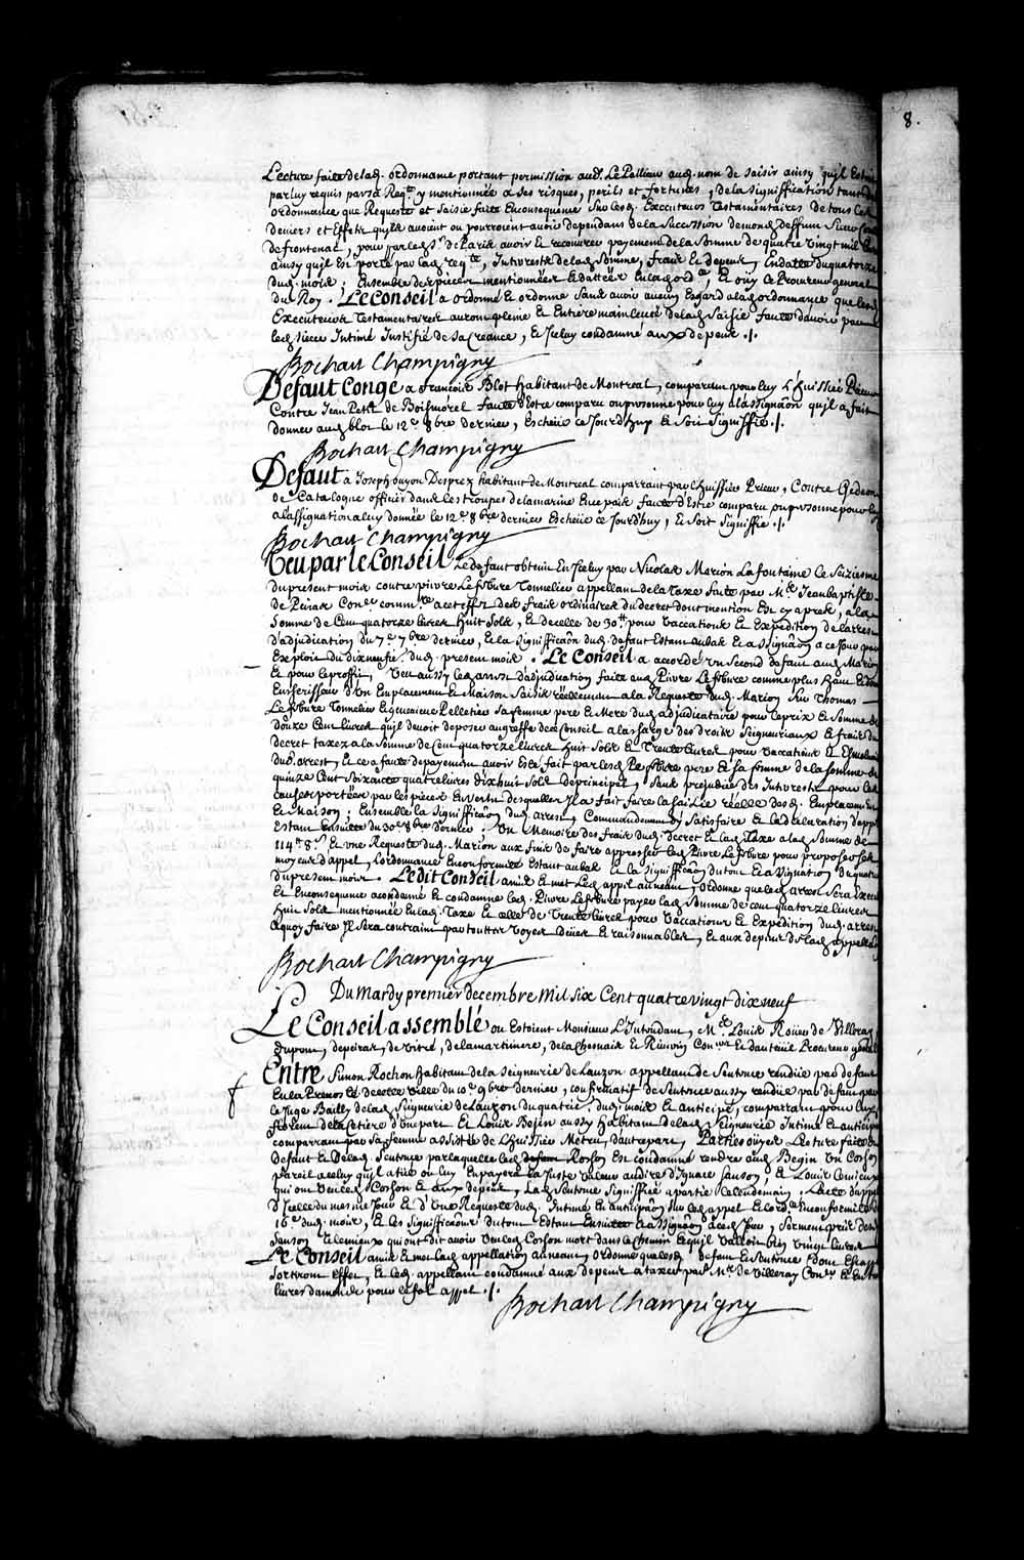 8.
Lecture faite de lad. ordonnance portant permission aud. Le Pallieur aud. nom de saisir ainsy qu'il Est
par luy requis par sa Reqte. y mentionnée a ses risques, perils et fortunes, de la signiffication tant
ordonnance que Requeste et saisie faite En consequence sur lesd. Executeurs Testamentaires de tous les
deniers et Effets qu'ils avoient ou pourroient avoir dependans de la succession de mond. deffunt Sieur
de frontenac, pour par led. Sr. de Paris avoir et recouvrer payement de la somme de quatre vingt mil
ainsy qu'il Est porté par lad. reqte., Interests de lad. somme, frais Et depens, En datte du quatorze
dud. mois; Ensemble des pieces mentionnées Et dattées En lad. ord. Et ouy Le Procureur general
du Roy. Le Conseil a ordonné Et ordonne sans avoir aucun Esgard a lad. ordonnance que lesd.
Executeurs Testamentaires auront pleine Et Entiere mainlevée de lad. saisie faute d'avoir par
led. sieur Intimé Justiffié de sa creance, Et Iceluy condamné aux depens ./.
Bochart Champigny
Defaut Congé a francois Blot habitant de Montreal, comparant pour luy L'huissier Prieur
Contre Jean Petit de Boismorel faute d'Estre comparu ou personne pour luy a l'assignaôn qu'il a fait
donner aud. blot le 12e. 8bre dernier, Escheüe ce Jourd'huy Et soit signiffié ./.
Bochart Champigny
Defaut a Joseph Guyon Desprez habitant de Montreal comparrant par L'huissier Prieur, Contre Gedeon
de Catalogne officier dans les troupes de la marine En ce pais faute d'Estre comparu ou personne pour luy
a l'assignation a luy donnée le 12e. 8bre dernier Escheüe ce Jourd'huy, Et soit signiffié ./.
Bochart Champigny
Veu par le Conseil Le defaut obtenu En Iceluy par Nicolas Marion La fontaine Le Seiziesme
du present mois contre pierre Lefebure Tonnelier appellant de la Taxe faite par Me. Jean baptiste
de Peiras Coner. commre. a cet effet des frais ordinaires du decret dont mention Est cy apres, a la
somme de Cent quatorze livres huit sols, Et de celle de 30tt. pour vaccations Et Expedition de l'arrest
d'adjudication du 7e. 7bre dernier, Et la signiffication dud. defaut Estant au bas Et assignaôn a ce Jour par
Exploit du dixneufie. dud. present mois. Le Conseil a accordé un second defaut aud. Marion
Et pour le proffit, Veu aussy led. arrest d'adjudication faite aud. Pierre Lefebure comme plus haut Et
Encherisseur d'un Emplacement Et Maison saisis reellement a la Requeste dud. Marion sur Thomas
Lefebure Tonnelier Et Genevieve Pelletier sa femme pere Et Mere dud. adjudicataire pour le prix Et somme de
douze Cent livres qu'il devoit deposer au greffe de ce Conseil a la charge des droits seigneuriaux Et frais du
decret taxez a la somme de Cent quatorze livres huit sols Et Trente livres pour vaccations Et
dud. arrest, Et ce a faute de payement avoir Esté fait par lesd. Lefebure pere Et sa femme de la somme de
quinze Cent soixante quatre livres dix huit sols de principal, sans prejudice des Interests pour les
causes portées par les pieces En vertu desquelles Il a fait faire la saisie réelle desd. Emplacement
Et Maison; Ensemble la signiffication dud. arrest, Commandement d'y satisfaire Et la declaration d'appel
Estant Ensuitte du 30e. 8bre dernier. Un Memoire des frais dud. decret Et lad. Taxe a lad. somme de
114tt. 8s. Et une Requeste dud. Marion aux fins de faire approcher led. Pierre Lefebure pour proposer ses
moyens d'appel, L'ordonnance Enconformité Estant au bas Et la signiffication du tout Et assignation du quatre
du present mois. Ledit Conseil a mis Et met led. appel au neant, ordonne que led. arrest sera Executé
Et En consequence a condamné Et condamne led. Pierre Lefebure payer lad. somme de cent quatorze livres
huit sols mentionnée En lad. Taxe Et celle de Trente livres pour vaccations Et Expedition dud. arrest
a quoy faire Il sera contraint par touttes voyes deües Et raisonnables, Et aux depens de lad. appellaôn
Bochart Champigny
Du Mardy premier decembre Mil six Cent quatre vingt dix neuf
Le Conseil assemblé ou Estoient Monsieur L'Intendant, Mes. Louis Roüer de Villeray
dupont, depeiras, de vitré, de la martiniere, de la Chesnais Et Riverin Conrs. Et dauteuil Procureur gnal
Entre Simon Rochon habitant de la seigneurie de Lauzon appellant de sentence rendüe par defaut
En la Prevosté de cette ville du 10e. 9bre dernier, confirmatif de sentence aussy rendüe par defaut par
le Juge Bailly de lad. seigneurie de Lauzon du quatrie. dud. mois Et anticipé, comparrant pour luy
de la Cetiere d'une part Et Louis Bejin aussy habitant de lad. seigneurie Intimé Et anticipant
comparrant par sa femme assistée de L'huissier Metru, d'autre part, Parties oüyes Lecture faite du
defaut Et de lad. sentence par laquelle led. Rochon Est condamné rendre aud. Begin un Cochon
pareil a celuy qu'il a tué ou luy En payer la Juste valeur au dire d'Ignace Sanson, Et Louis Lemieux
qui ont veu led. Cochon Et aux depens, lad. sentence signiffiée a partie le lendemain, L'acte d'appel
d'Icelle du mesme Jour Et d'une Requeste dud. Intimé En anticipaôn sur led. appel Et Lord.ce Enconformité du
16e. dud. mois, Et les signiffications du tout Estant Ensuitte Et assignaôn a ced. Jour, serment pris desd.
Sanson Et Lemieux qui ont dit avoir veu led. Cochon mort dans le chemin Et qu'il valloit bien vingt livres
Le Conseil a mis Et met lad. appellation au neant, ordonne que lesd. defaut Et sentence dont Est appel
sortiront Effet, Et led. appellant condamné aux depens a taxer par Mr. de Villeray Coner. Et En trois
livres d'amende pour le fol appel ./.
Bochart Champigny